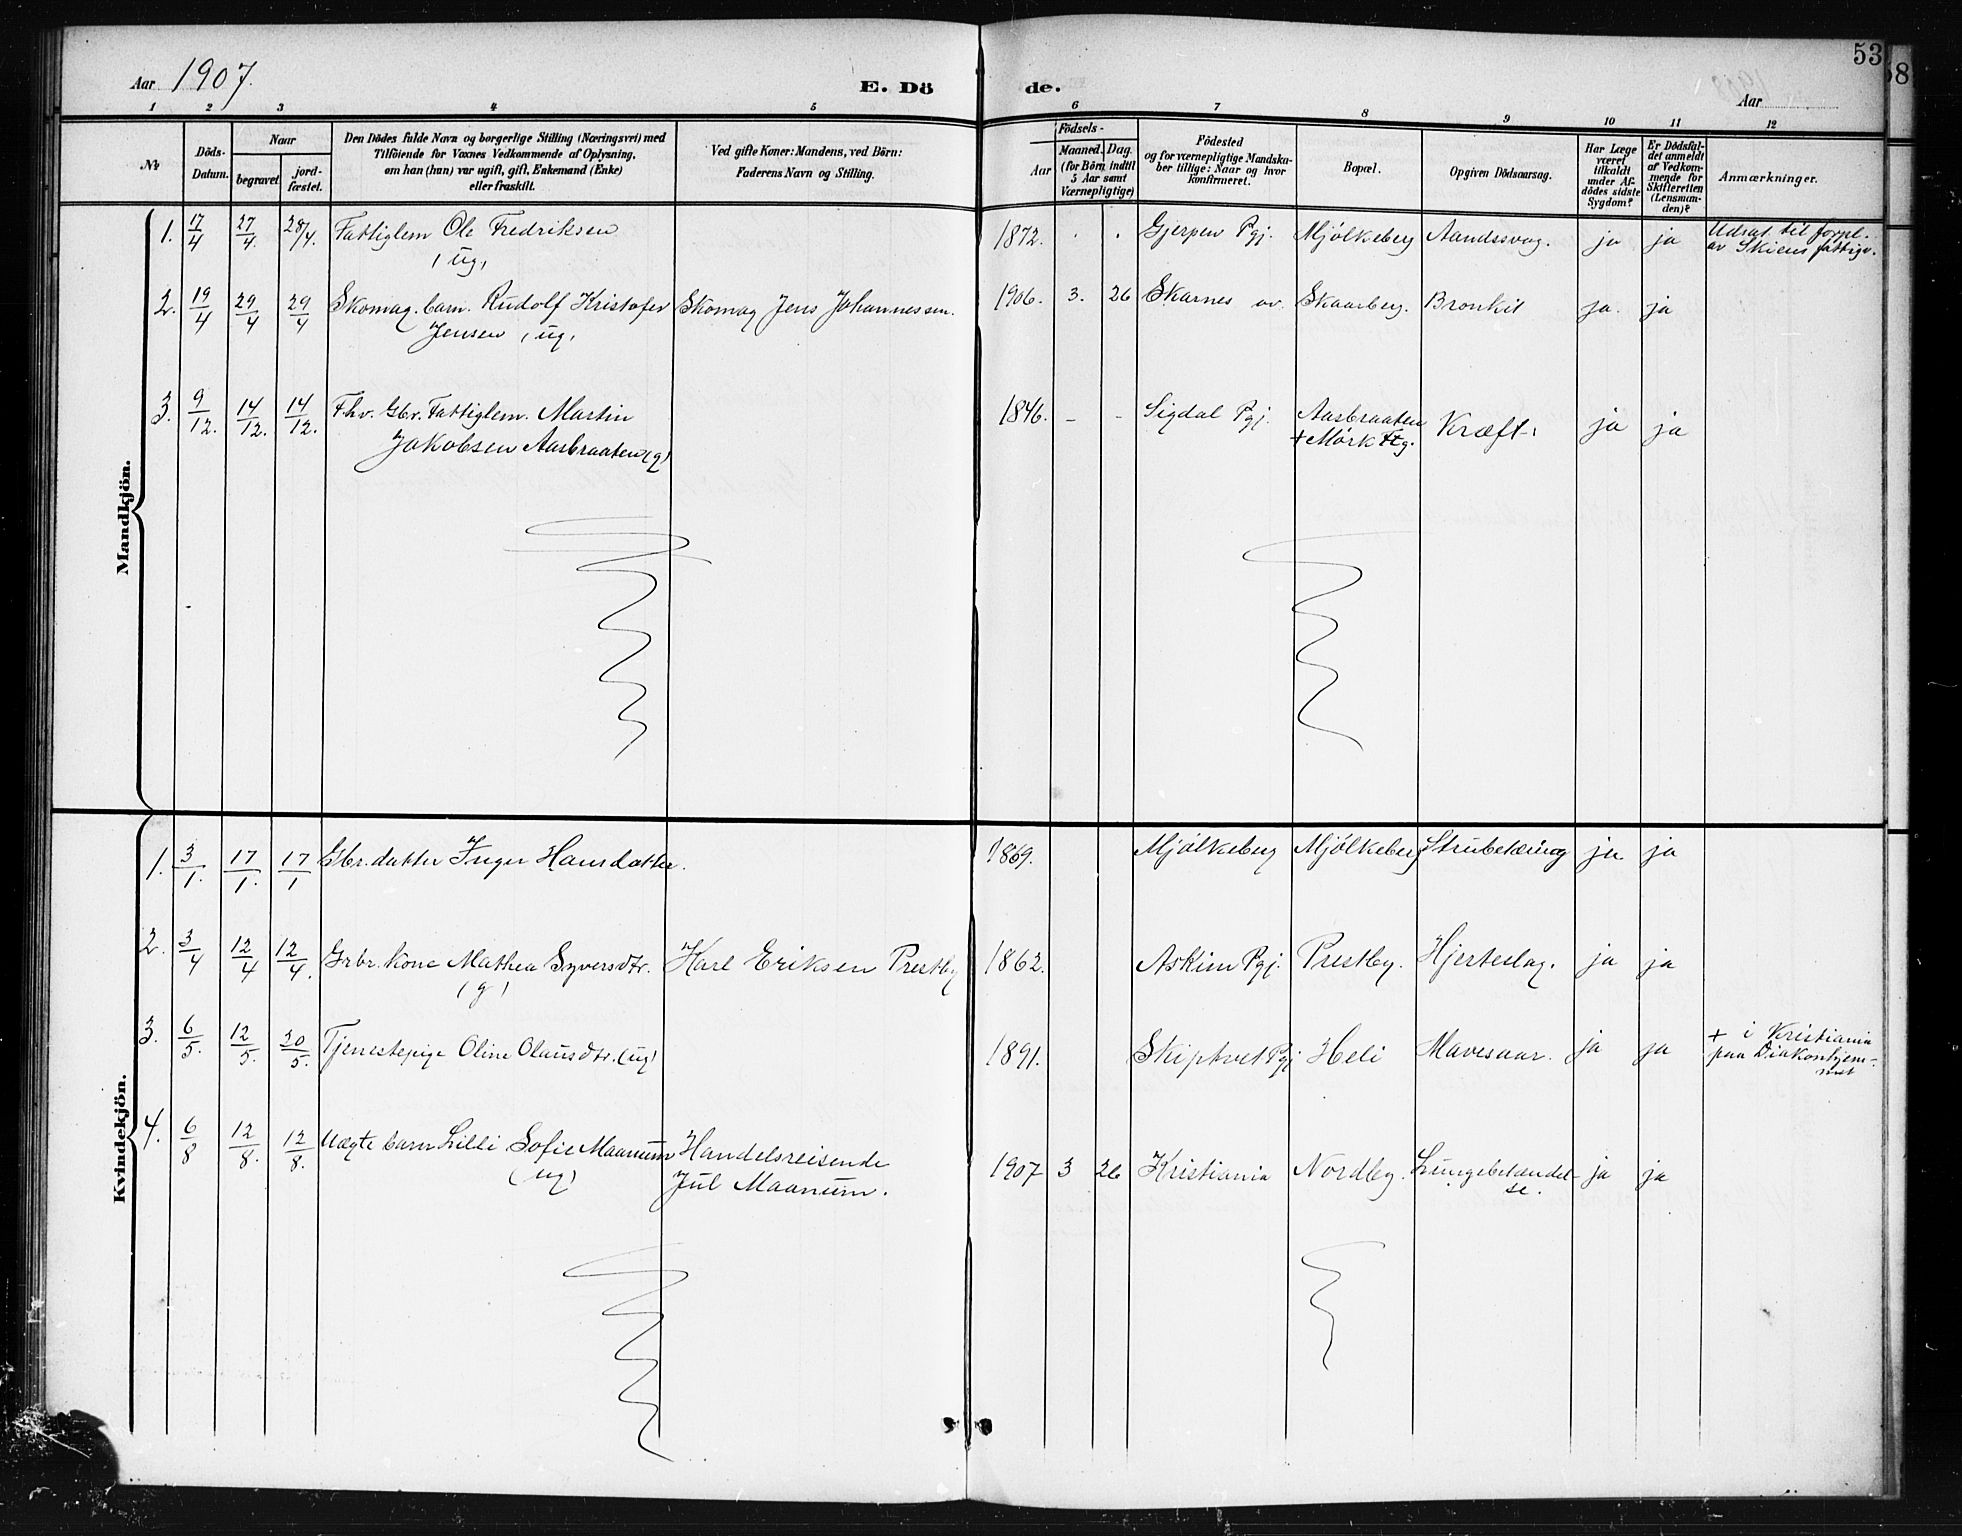 53
58
Aar 1907.
E. Dö de.
Aar
1 2 3 4 5 6 7 8 9 10 11 12
No
Döds-
Datum.
Naar
begravet
jord-
fæstet.
Den Dödes fulde Navn og borgerlige Stilling (Næringsvei) med
Tilföiende for Voxnes Vedkommende af Oplysning,
om han (hun) var ugift, gift, Enkemand (Enke)
eller fraskilt.
Ved gifte Koner: Mandens, ved Börn:
Faderens Navn og Stilling.
Födsels-
Aar
Maaned. Dag.
(for Börn indtil
5 Aar samt
Værnepligtige)
Födested
og for værnepligtige Mandska-
ber tillige: Naar og hvor
konfirmeret.
Bopæl.
Opgiven Dödsaarsag.
Har Læge
været
tilkaldt
under Af-
dödes sidste
Sygdom?
Er Dödsfal-
det anmeldt
af Vedkom-
mende for
Skifteretten
(Lensman-
den)?
Anmærkninger.
Mandkjön.
1. 17/4 27/4. 28/4. Fattiglem Ole Fredriksen 1872. Gjerpen Pgj. Mjölkeberg Aandssvag. ja ja Udsat til forpl.
(ug) av Skiens fattigv.
2. 19/4 29/4 29/4 Skomag. barn. Rudolf Kristofer Skomag Jens Johannessen. 1906. 3. 26 Skarnes av. Skaarberg. Bronkit ja. ja
Jensen (ug)
3. 9/12. 14/12. 14/12. Fhv. Gbr. Fattiglem. Martin 1846. - - Sigdal Pgj. Aasbraaten Kræft. ja ja
Jakobsen Aasbraaten (g) + Mörk Ftg.
Kvindekjön.
1. 3/1. 17/1. 17/1 Gbr. datter Inger Hansdatter. 1869. Mjölkeberg Mjölkeberg Strubetæring ja ja
2. 3/4 12/4 12/4. Grbr. kone Mathea Syversdtr. Karl Eriksen Prestby 1862. Askim Pgj. Prestby. Hjerteslag. ja ja
(g)
3. 6/5. 12/5. 20/5. Tjenestepige Oline Olausdtr. (ug) 1891. Skiptvet Pgj Heli Mavesaar. ja ja + i Kristiania
paa Diakonhjem-
met
4. 6/8 12/8. 12/8. Uægte barn Lilli Sofie Maanum Handelsreisende 1907 3 26 Kristiania Nordby. Lungebetændel- ja ja
(ug) Jul Maanum. se.